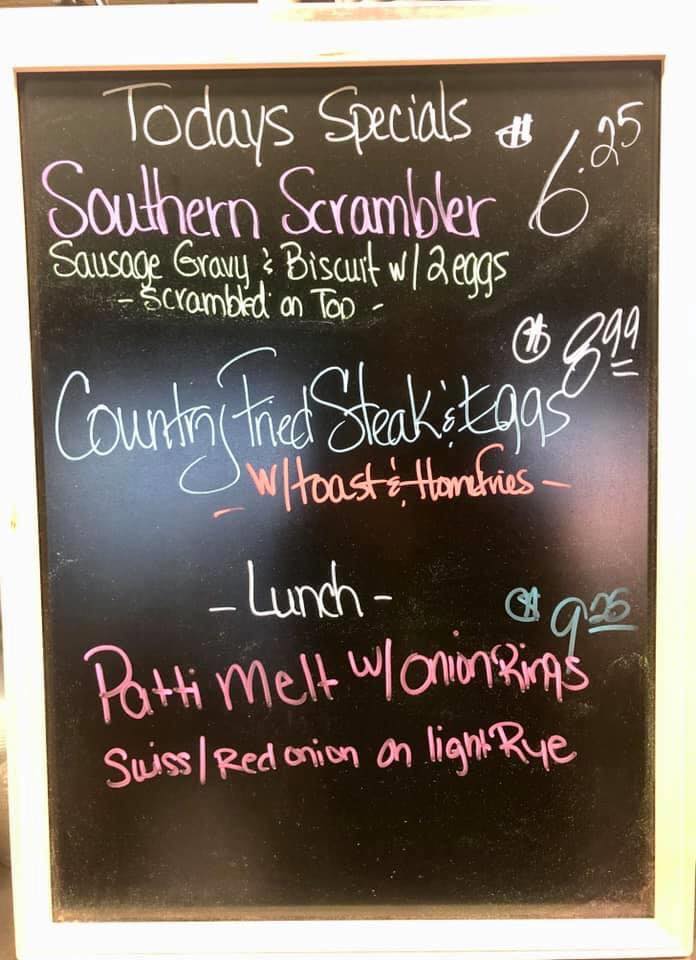 Todays Specials
$6.25
Southern Scrambler
Sausage Gravy & Biscuit w/ 2 eggs
- Scrambled on Top -
$8.99
Country Fried Steak & Eggs
- W/ toast & Homefries -
- Lunch -
$9.25
Patti Melt w/ Onion Rings
Swiss/Red onion on light Rye